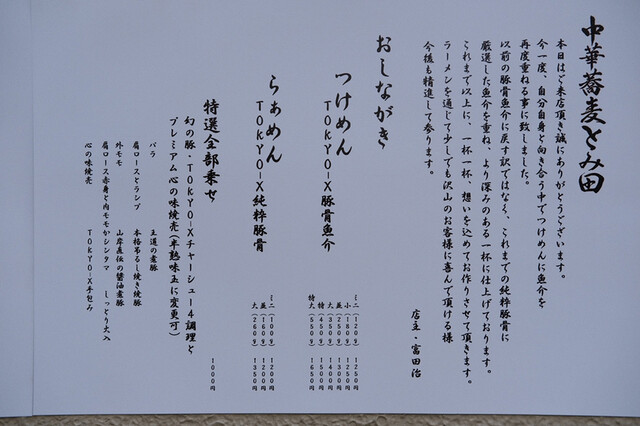 中華蕎麦とみ田
本日はご来店頂き誠にありがとうございます。
今一度、自分自身と向き合う中でつけめんに魚介を
再度重ねる事に致しました。
以前の豚骨魚介に戻す訳ではなく、これまでの純粋豚骨に
厳選した魚介を重ね、より深みのある一杯に仕上げております。
これまで以上に、一杯一杯、想いを込めてお作りさせて頂きます。
ラーメンを通じて少しでも沢山のお客様に喜んで頂ける様
今後も精進して参ります。
店主・富田治
おしながき
つけめん
TOKYO-X豚骨魚介
ミニ(120g) 1250円
小(180g) 1250円
並(250g) 1300円
大(350g) 1400円
特(450g) 1500円
特大(550g) 1650円
らぁめん
TOKYO-X純粋豚骨
ミニ(100g) 1200円
並(160g) 1200円
大(260g) 1350円
特選全部乗せ
1000円
幻の豚・TOKYO-Xチャーシュー4調理と
プレミアム心の味焼売(半熟味玉に変更可)
バラ 王道の煮豚
肩ロースとランプ 本格吊るし焼き焼豚
外モモ 山岸直伝の醤油煮豚
肩ロース赤身と内モモかシンタマ しっとり火入
心の味焼売 TOKYO-X手包み